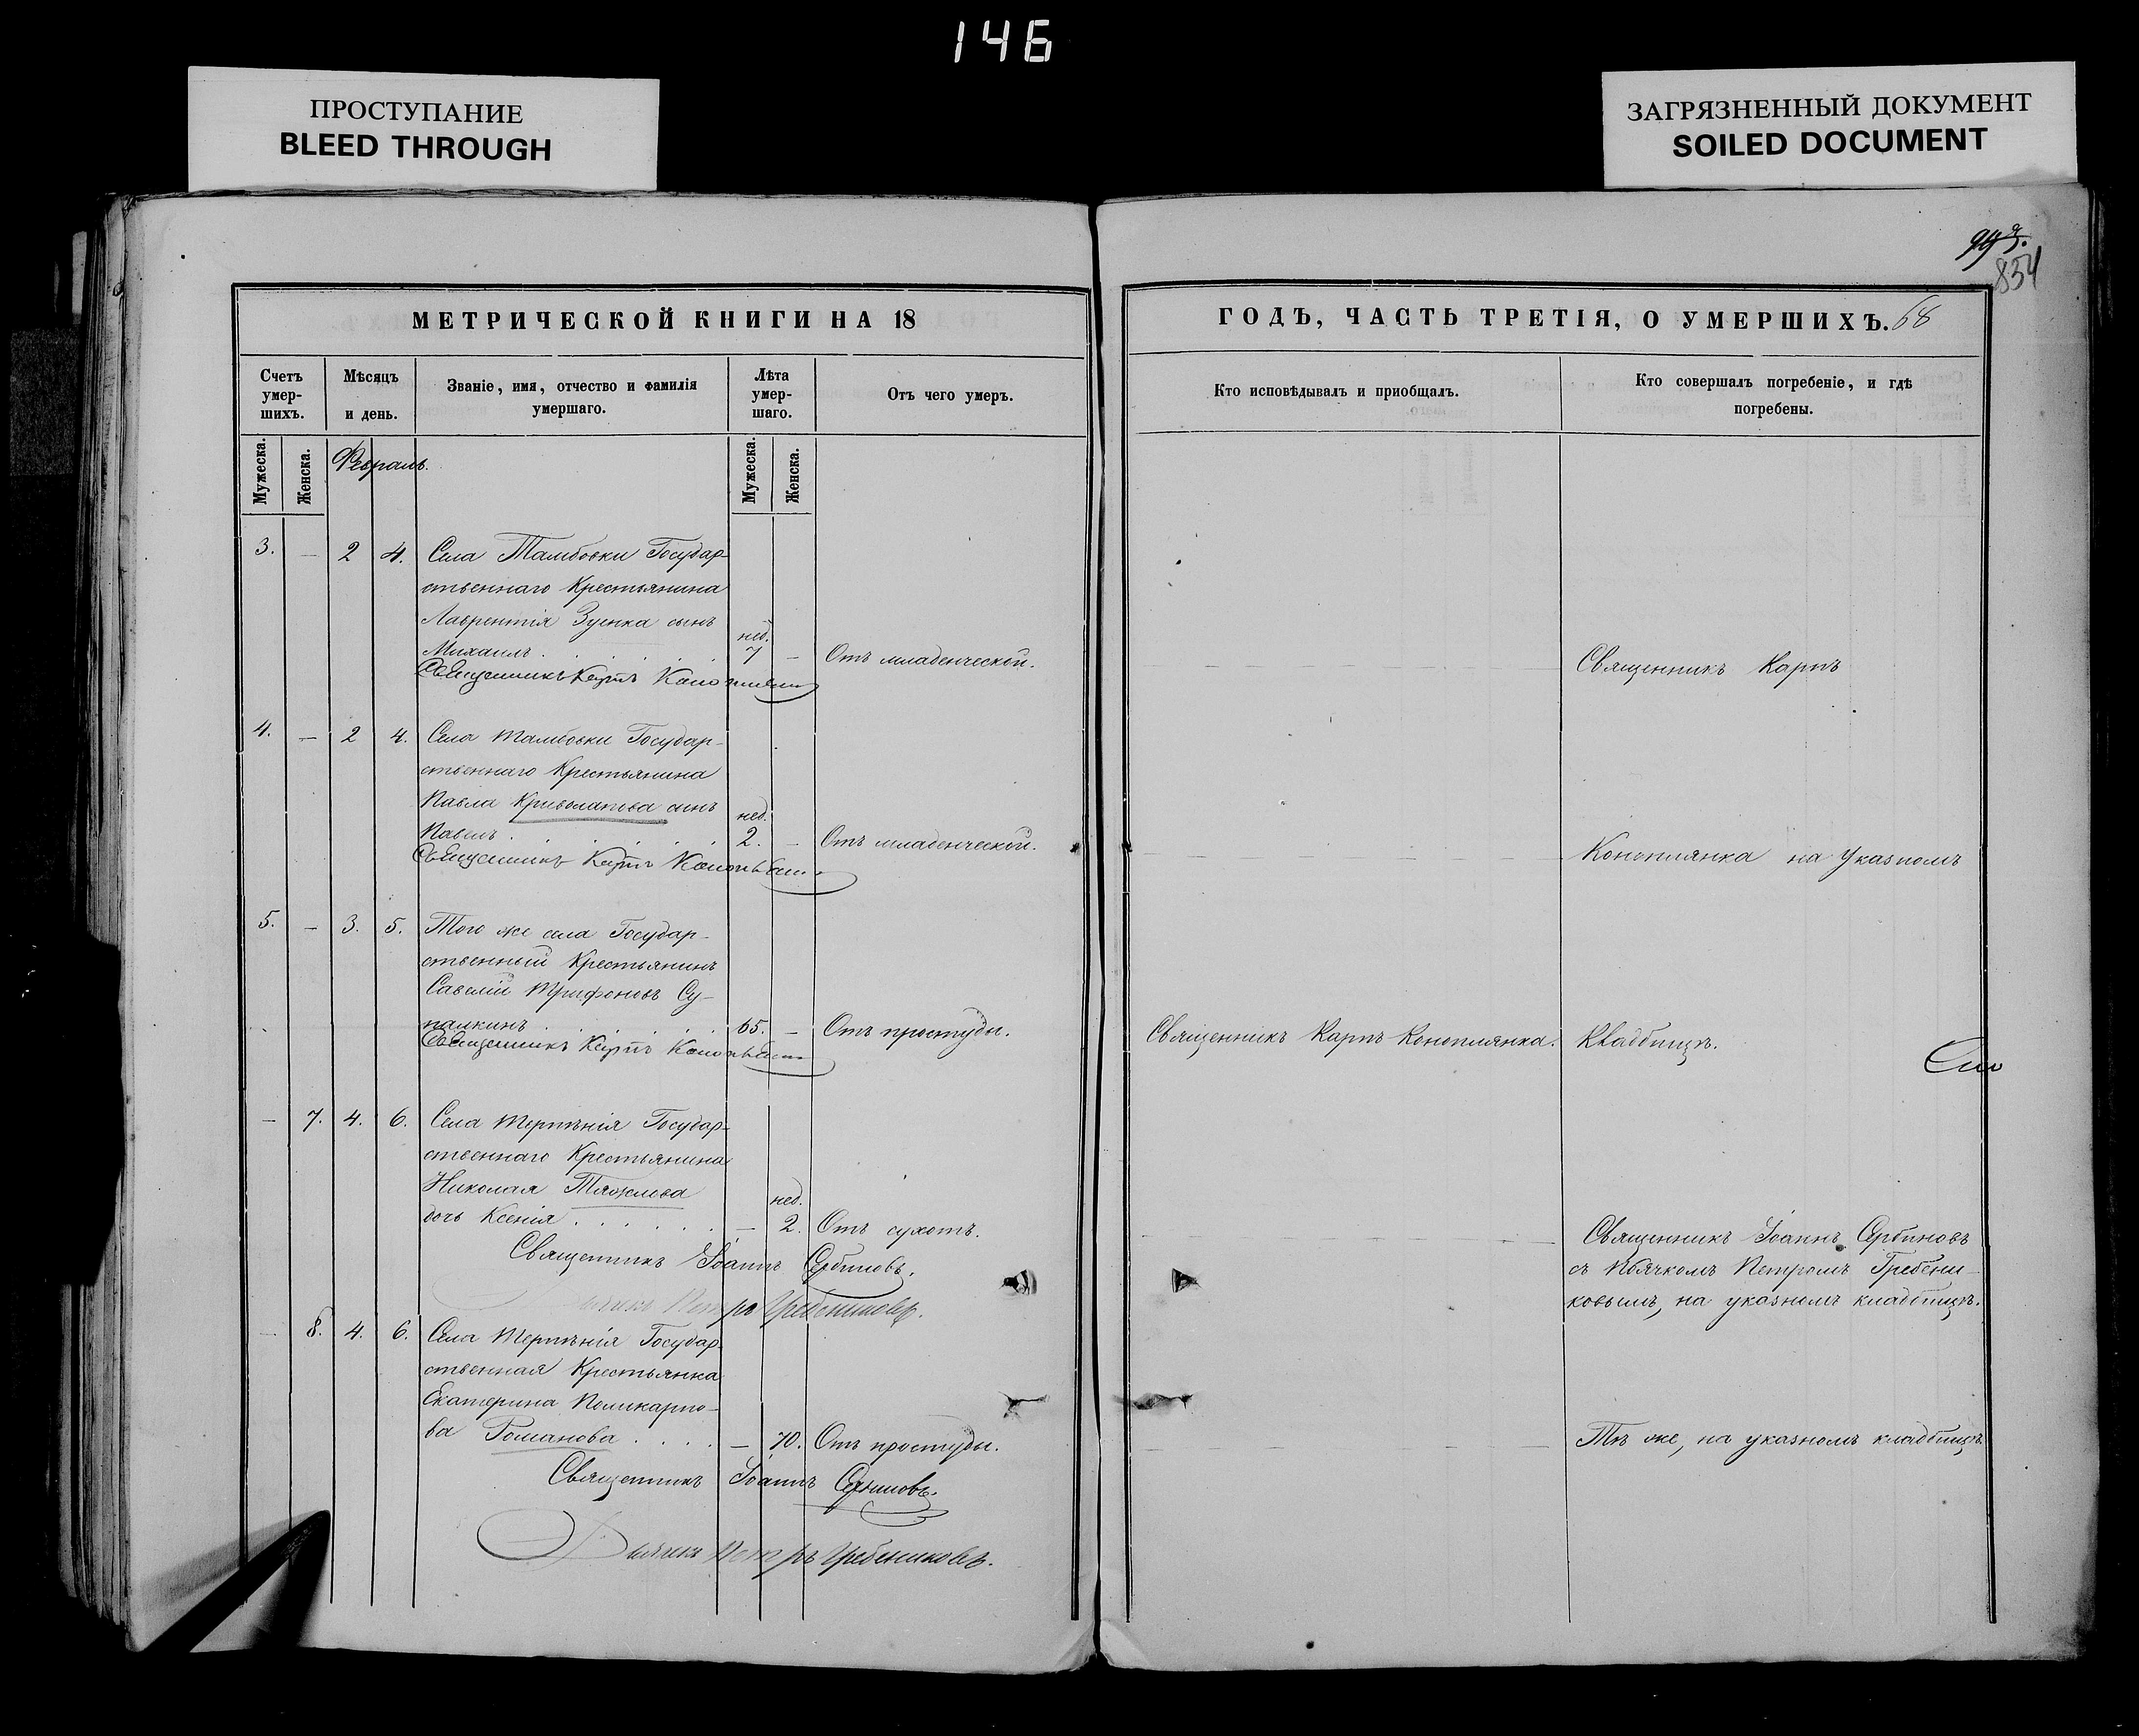 146
ПРОСТУПАНИЕ
BLEED THROUGH
ЗАГРЯЗНЕННЫЙ ДОКУМЕНТ
SOILED DOCUMENT
834
МЕТРИЧЕСКОЙ КНИГИ НА 18
ГОДЪ, ЧАСТЬ ТРЕТІЯ, О УМЕРШИХЪ. 68
Счетъ умер-шихъ.
Мѣсяцъ и день.
Званіе, имя, отчество и фамилія умершаго.
Лѣта умер-шаго.
Отъ чего умеръ.
Кто исповѣдывалъ и приобщалъ.
Кто совершалъ погребеніе, и гдѣ погребены.
Мужеска.
Женска.
Февраль.
Мужеска.
Женска.
3. — 2 4. Села Тамбовки Государ-
ственнаго Крестьянина
Лаврентія Зуенка сынъ
нед.
Михаилъ . . . . . 7 — Отъ младенческой.
Священникъ Карпъ
Священникъ Карпъ
4. — 2 4. Села Тамбовки Государ-
ственнаго Крестьянина
Павла Криволапова сынъ
нед.
Павелъ . . . . . 2. — Отъ младенческой.
Коноплянка на указномъ
Священникъ Карпъ
5. — 3. 5. Того же села Государ-
ственный Крестьянинъ
Савелій Трифоновъ Су-
палкинъ . . . . . 65. — Отъ простуды.
Священникъ Карпъ Коноплянка.
Кладбищѣ.
Священникъ Карпъ
— 7. 4. 6. Села Терпѣнія Государ-
ственнаго Крестьянина
Николая Тяжлова
нед.
дочь Ксенія . . . . . . — 2. Отъ сухотъ.
Священникъ Іоаннъ Сербиновъ
съ Дьячкомъ Петромъ Гребени-
ковымъ, на указномъ кладбищѣ.
Священникъ Іоаннъ Сербиновъ.
Дьячекъ Петръ Гребениковъ.
— 8. 4. 6. Села Терпѣнія Государ-
ственная Крестьянка
Екатерина Поликарпо-
ва Романова . . . . — 70. Отъ простуды.
Тѣ же, на указномъ кладбищѣ.
Священникъ Іоаннъ Сербиновъ.
Дьячекъ Петръ Гребениковъ.